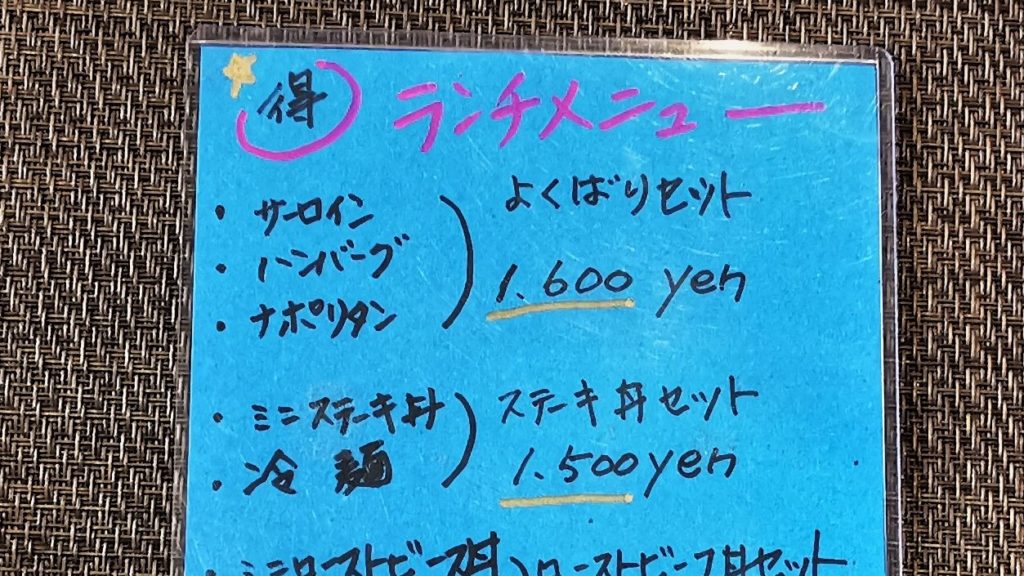 得 ランチメニュー
・サーロイン
・ハンバーグ
・ナポリタン
よくばりセット
1.600 yen
・ミニステーキ丼
・冷麺
ステーキ丼セット
1.500yen
・ミニローストビーフ丼 ローストビーフ丼セット